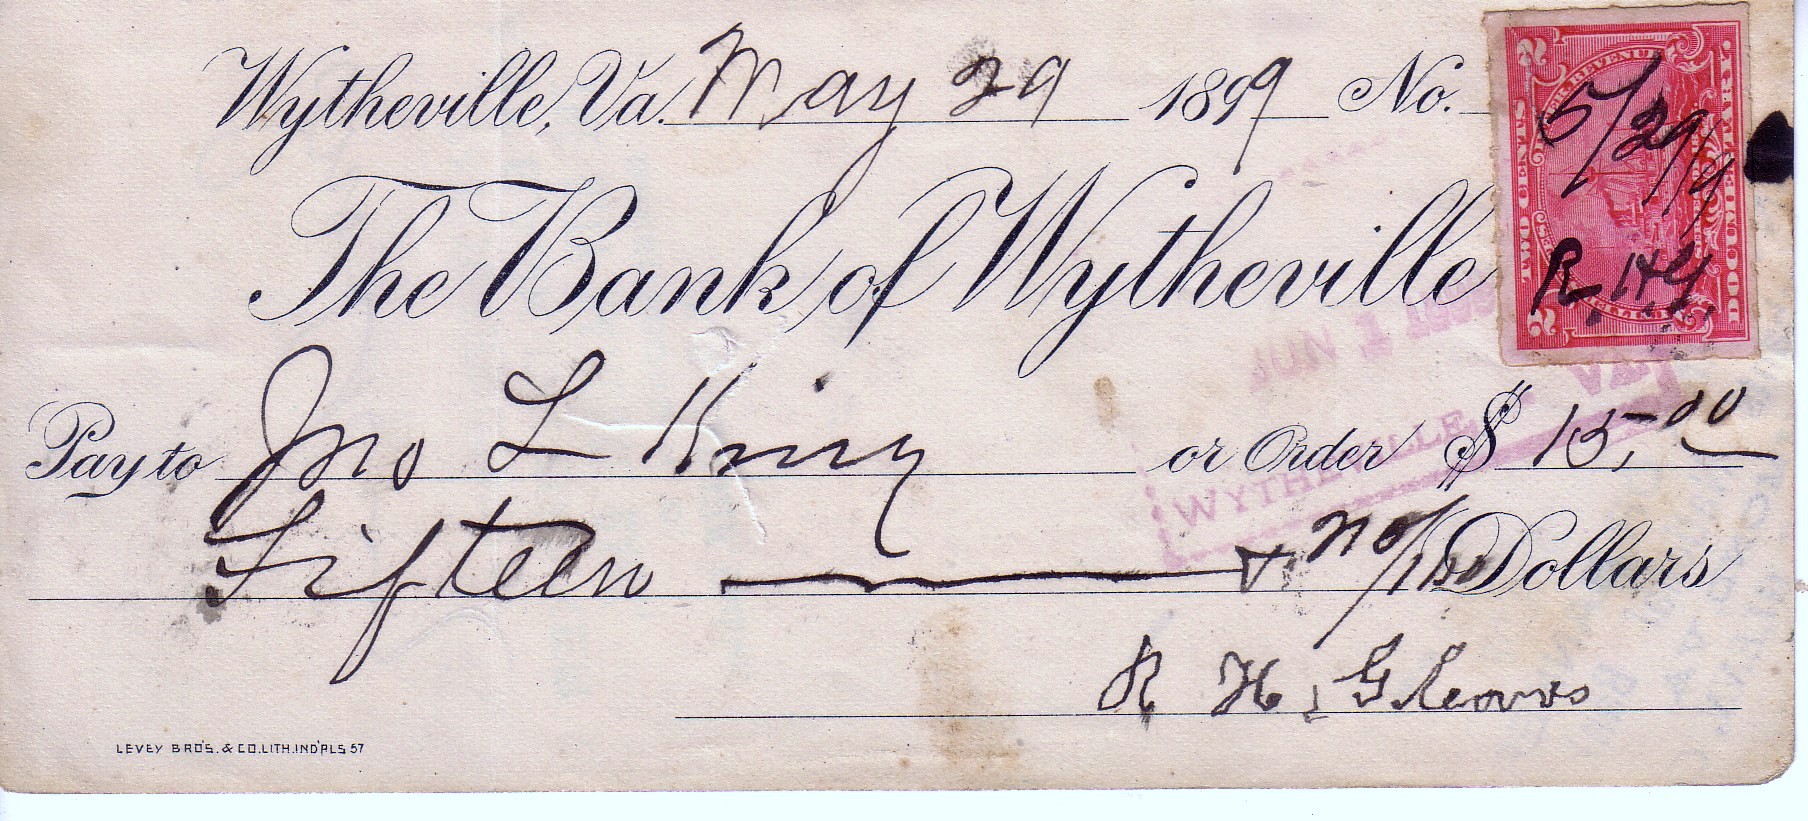 Wytheville, Va. May 29 1899 No.
The Bank of Wytheville
Pay to Jno L King or Order $ 15,00
Fifteen + no/100 Dollars
R H Gleaves
LEVEY BRO'S. & CO. LITH. IND'PLS 57
2 2
TWO CENTS
DOCUMENTARY
5/29/99
R.H.G.
WYTHEVILLE
VA.